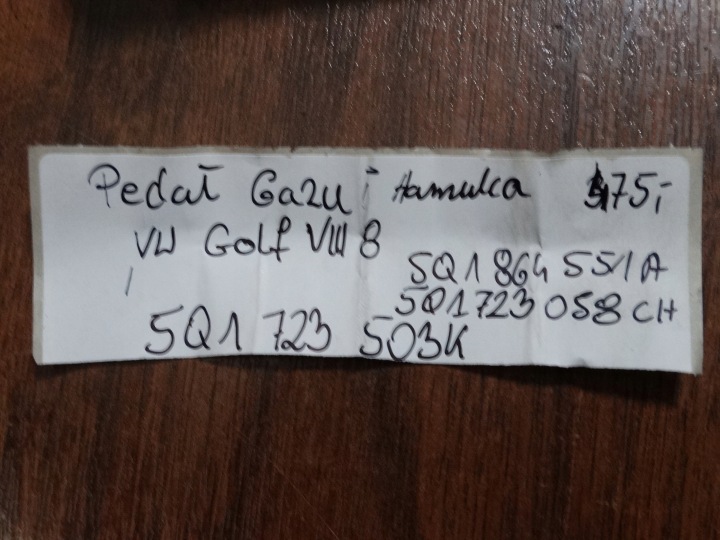 Pedał Gazu i Hamulca 175,-
VW Golf VIII 8
5Q1 864 551A
5Q1723 058 CH
5Q1 723 503K